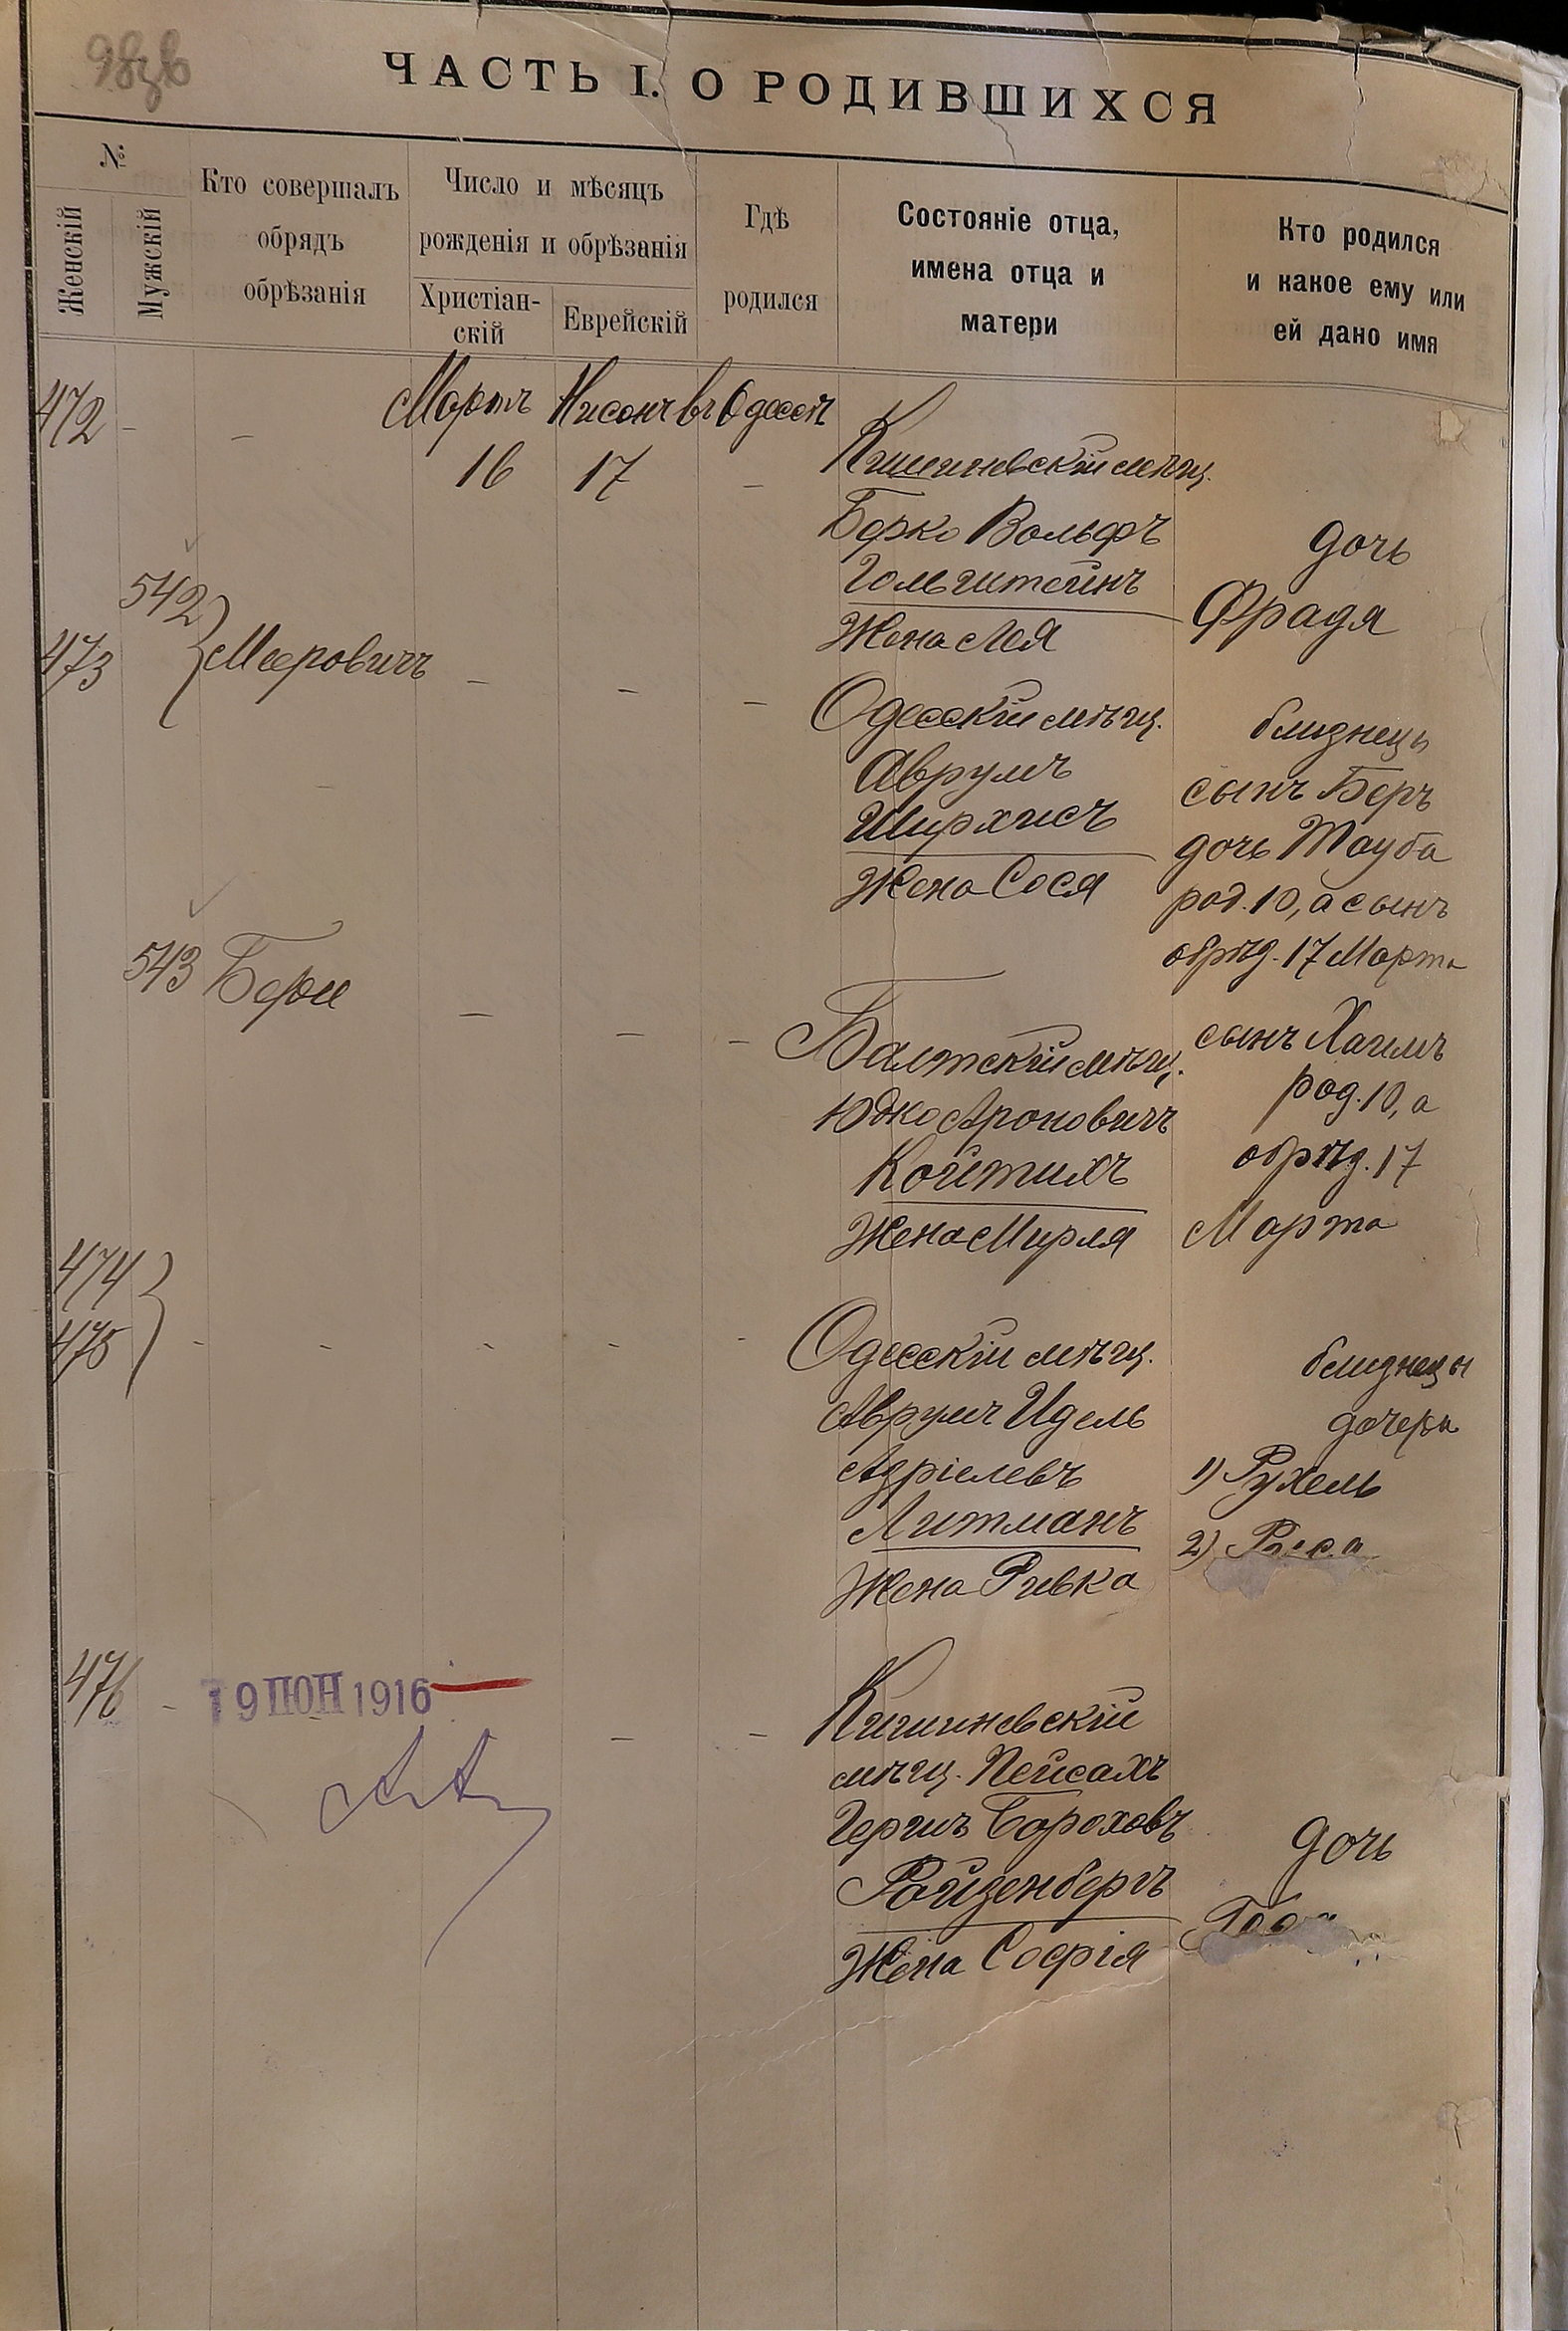 ЧАСТЬ I. О РОДИВШИХСЯ
№
Женскій
Мужскій
Кто совершалъ
обрядъ
обрѣзанія
Число и мѣсяцъ
рожденія и обрѣзанія
Христіан-
скій
Еврейскій
Гдѣ
родился
Состояніе отца,
имена отца и
матери
Кто родился
и какое ему или
ей дано имя
472 - - Мартъ Нисонъ въ Одессѣ
16 17 -
Кишиневскій мѣщ.
Берко Вольфъ
Гольдштейнъ
Жена Лея
дочь
Фрадя
542
473
Мееровичъ - - -
Одесскій мѣщ.
Аврумъ
Ширхисъ
Жена Сося
близнецы
сынъ Беръ
дочь Тауба
род. 10, а сынъ
обрѣз. 17 Марта
543 Бери - - -
Балтскій мѣщ.
Юдко Ароновичъ
Койтихъ
Жена Мирля
сынъ Хаимъ
род. 10, а
обрѣз. 17
Марта
474
475 - - - - -
Одесскій мѣщ.
Аврумъ Идель
Азріелевъ
Литманъ
Жена Ривка
близнецы
дочери
1) Рухель
2)
476 - 19 ІЮН 1916
- -
Кишиневскій
мѣщ. Пейсахъ
Гершъ Бороховъ
Ройзенбергъ
Жена Софія
дочь